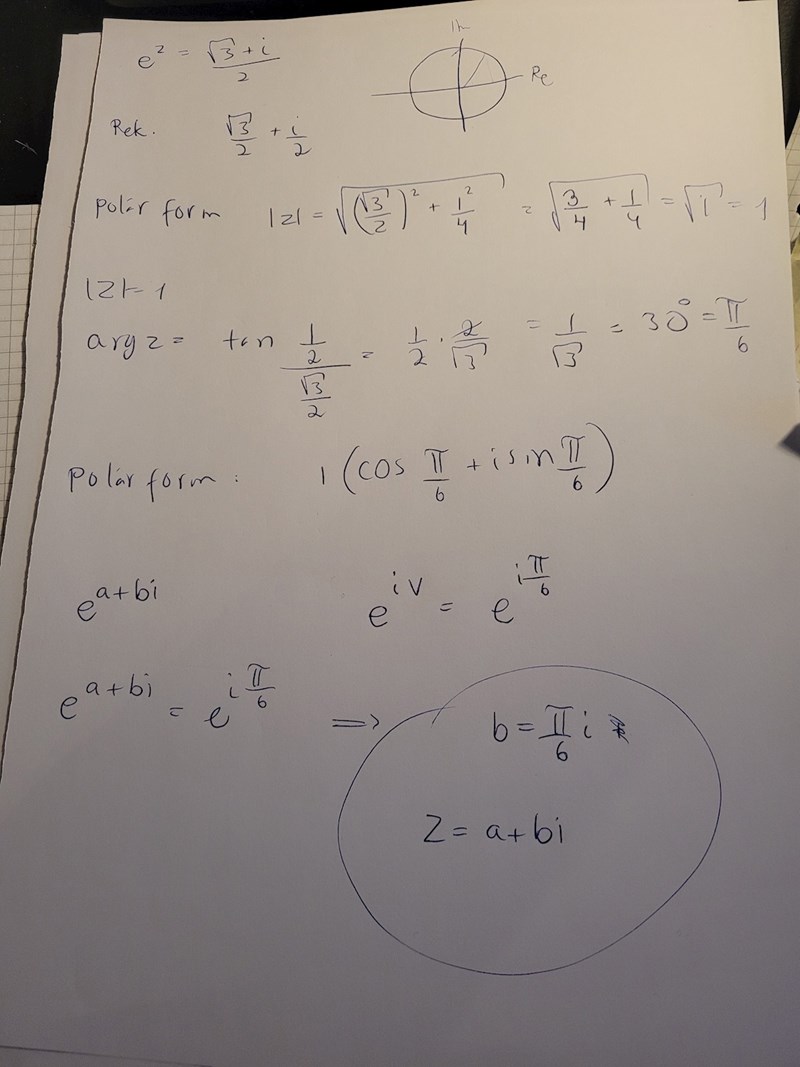 e^z = (√3 + i)/2
Im
Re
Rek. √3/2 + i/2
polär form |z| = √((√3/2)² + 1²/4) = √(3/4 + 1/4) = √1 = 1
|z|=1
arg z = tan (1/2)/(√3/2) = 1/2 · 2/√3 = 1/√3 = 30° = π/6
Polär form: 1(cos π/6 + i sin π/6)
e^(a+bi) e^(iv) = e^(iπ/6)
e^(a+bi) = e^(iπ/6) ⇒ b = π/6 i
z = a+bi